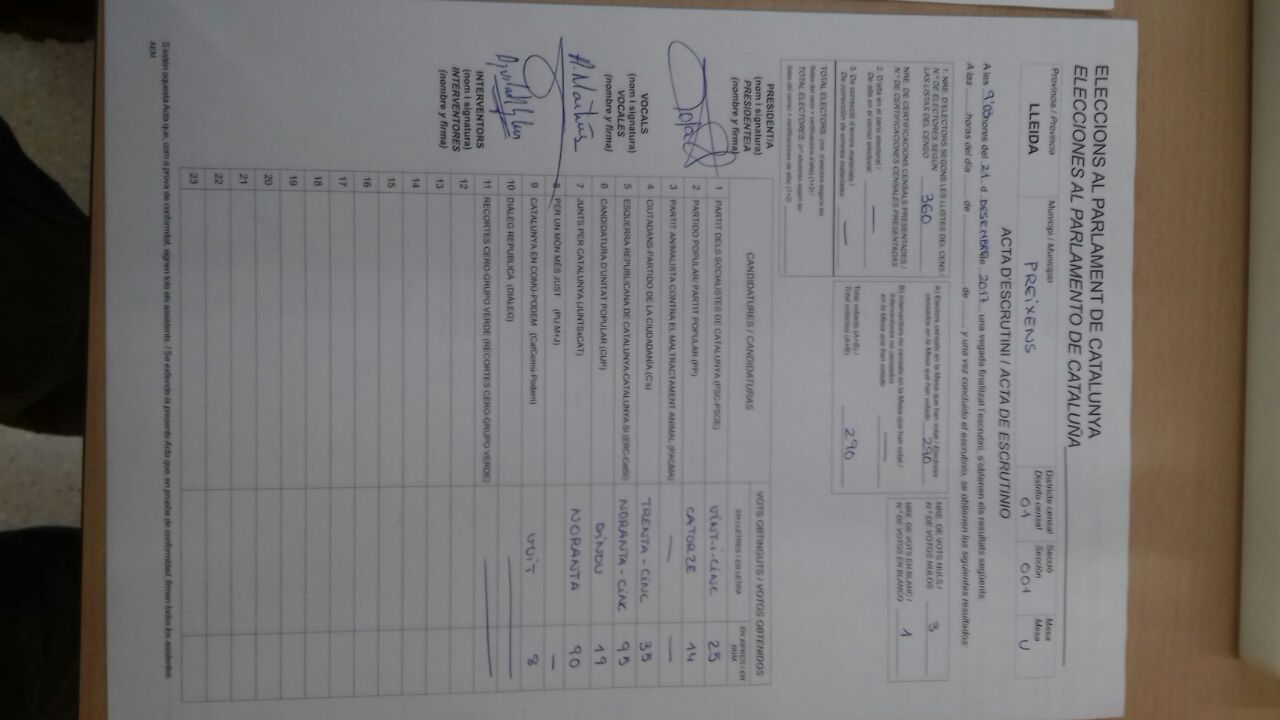 ELECCIONS AL PARLAMENT DE CATALUNYA
ELECCIONES AL PARLAMENTO DE CATALUÑA
Província / Provincia
LLEIDA
Municipi / Municipio
PREIXENS
Districte censal
Distrito censal
01
Secció
Sección
001
Mesa
Mesa
U
ACTA D'ESCRUTINI / ACTA DE ESCRUTINIO
A les 9'00 hores del 21 d DESEMBRE de 2017, una vegada finalitzat l'escrutini, s'obtenen els resultats següents:
A las horas del día de de y una vez concluido el escrutinio, se obtienen los siguientes resultados:
1. NRE. D'ELECTORS SEGONS LES LLISTES DEL CENS /
N.º DE ELECTORES SEGÚN
LAS LISTAS DEL CENSO
360
NRE. DE CERTIFICACIONS CENSALS PRESENTADES /
N.º DE CERTIFICACIONES CENSALES PRESENTADAS
2. D'alta en el cens electoral /
De alta en el censo electoral:
—
3. De correcció d'errors materials /
De corrección de errores materiales:
—
TOTAL ELECTORS:
TOTAL ELECTORES:
A) Electors censats en la Mesa que han votat / Electores
censados en la Mesa que han votado 290
B) Interventors no censats en la Mesa que han votat /
Interventores no censados
en la Mesa que han votado —
Total votants (A+B) /
Total votantes (A+B) 290
NRE. DE VOTS NULS /
N.º DE VOTOS NULOS 3
NRE. DE VOTS EN BLANC /
N.º DE VOTOS EN BLANCO 1
CANDIDATURES / CANDIDATURAS
VOTS OBTINGUTS / VOTOS OBTENIDOS
EN LLETRES / EN LETRA
EN XIFRES / EN NÚM.
1 PARTIT DELS SOCIALISTES DE CATALUNYA (PSC-PSOE) VINT-I-CINC 25
2 PARTIDO POPULAR/ PARTIT POPULAR (PP) CATORZE 14
3 PARTIT ANIMALISTA CONTRA EL MALTRACTAMENT ANIMAL (PACMA) — —
4 CIUTADANS-PARTIDO DE LA CIUDADANÍA (C's) TRENTA-CINC 35
5 ESQUERRA REPUBLICANA DE CATALUNYA-CATALUNYA SÍ (ERC-CatSí) NORANTA-CINC 95
6 CANDIDATURA D'UNITAT POPULAR (CUP) DINOU 19
7 JUNTS PER CATALUNYA (JUNTSxCAT) NORANTA 90
8 PER UN MÓN MÉS JUST (PUM+J) —
9 CATALUNYA EN COMÚ-PODEM (CatComú-Podem) VUIT 8
10 DIÀLEG REPUBLICÀ (DIÀLEG) —
11 RECORTES CERO-GRUPO VERDE (RECORTES CERO-GRUPO VERDE) —
12
13
14
15
16
17
18
19
20
21
22
23
PRESIDENT/A
(nom i signatura)
PRESIDENTE/A
(nombre y firma)
VOCALS
(nom i signatura)
VOCALES
(nombre y firma)
INTERVENTORS
(nom i signatura)
INTERVENTORES
(nombre y firma)
S'estén aquesta Acta que, com a prova de conformitat, signen tots els assistents. / Se extiende la presente Acta que, en prueba de conformidad, firman todos los asistentes.
AEM